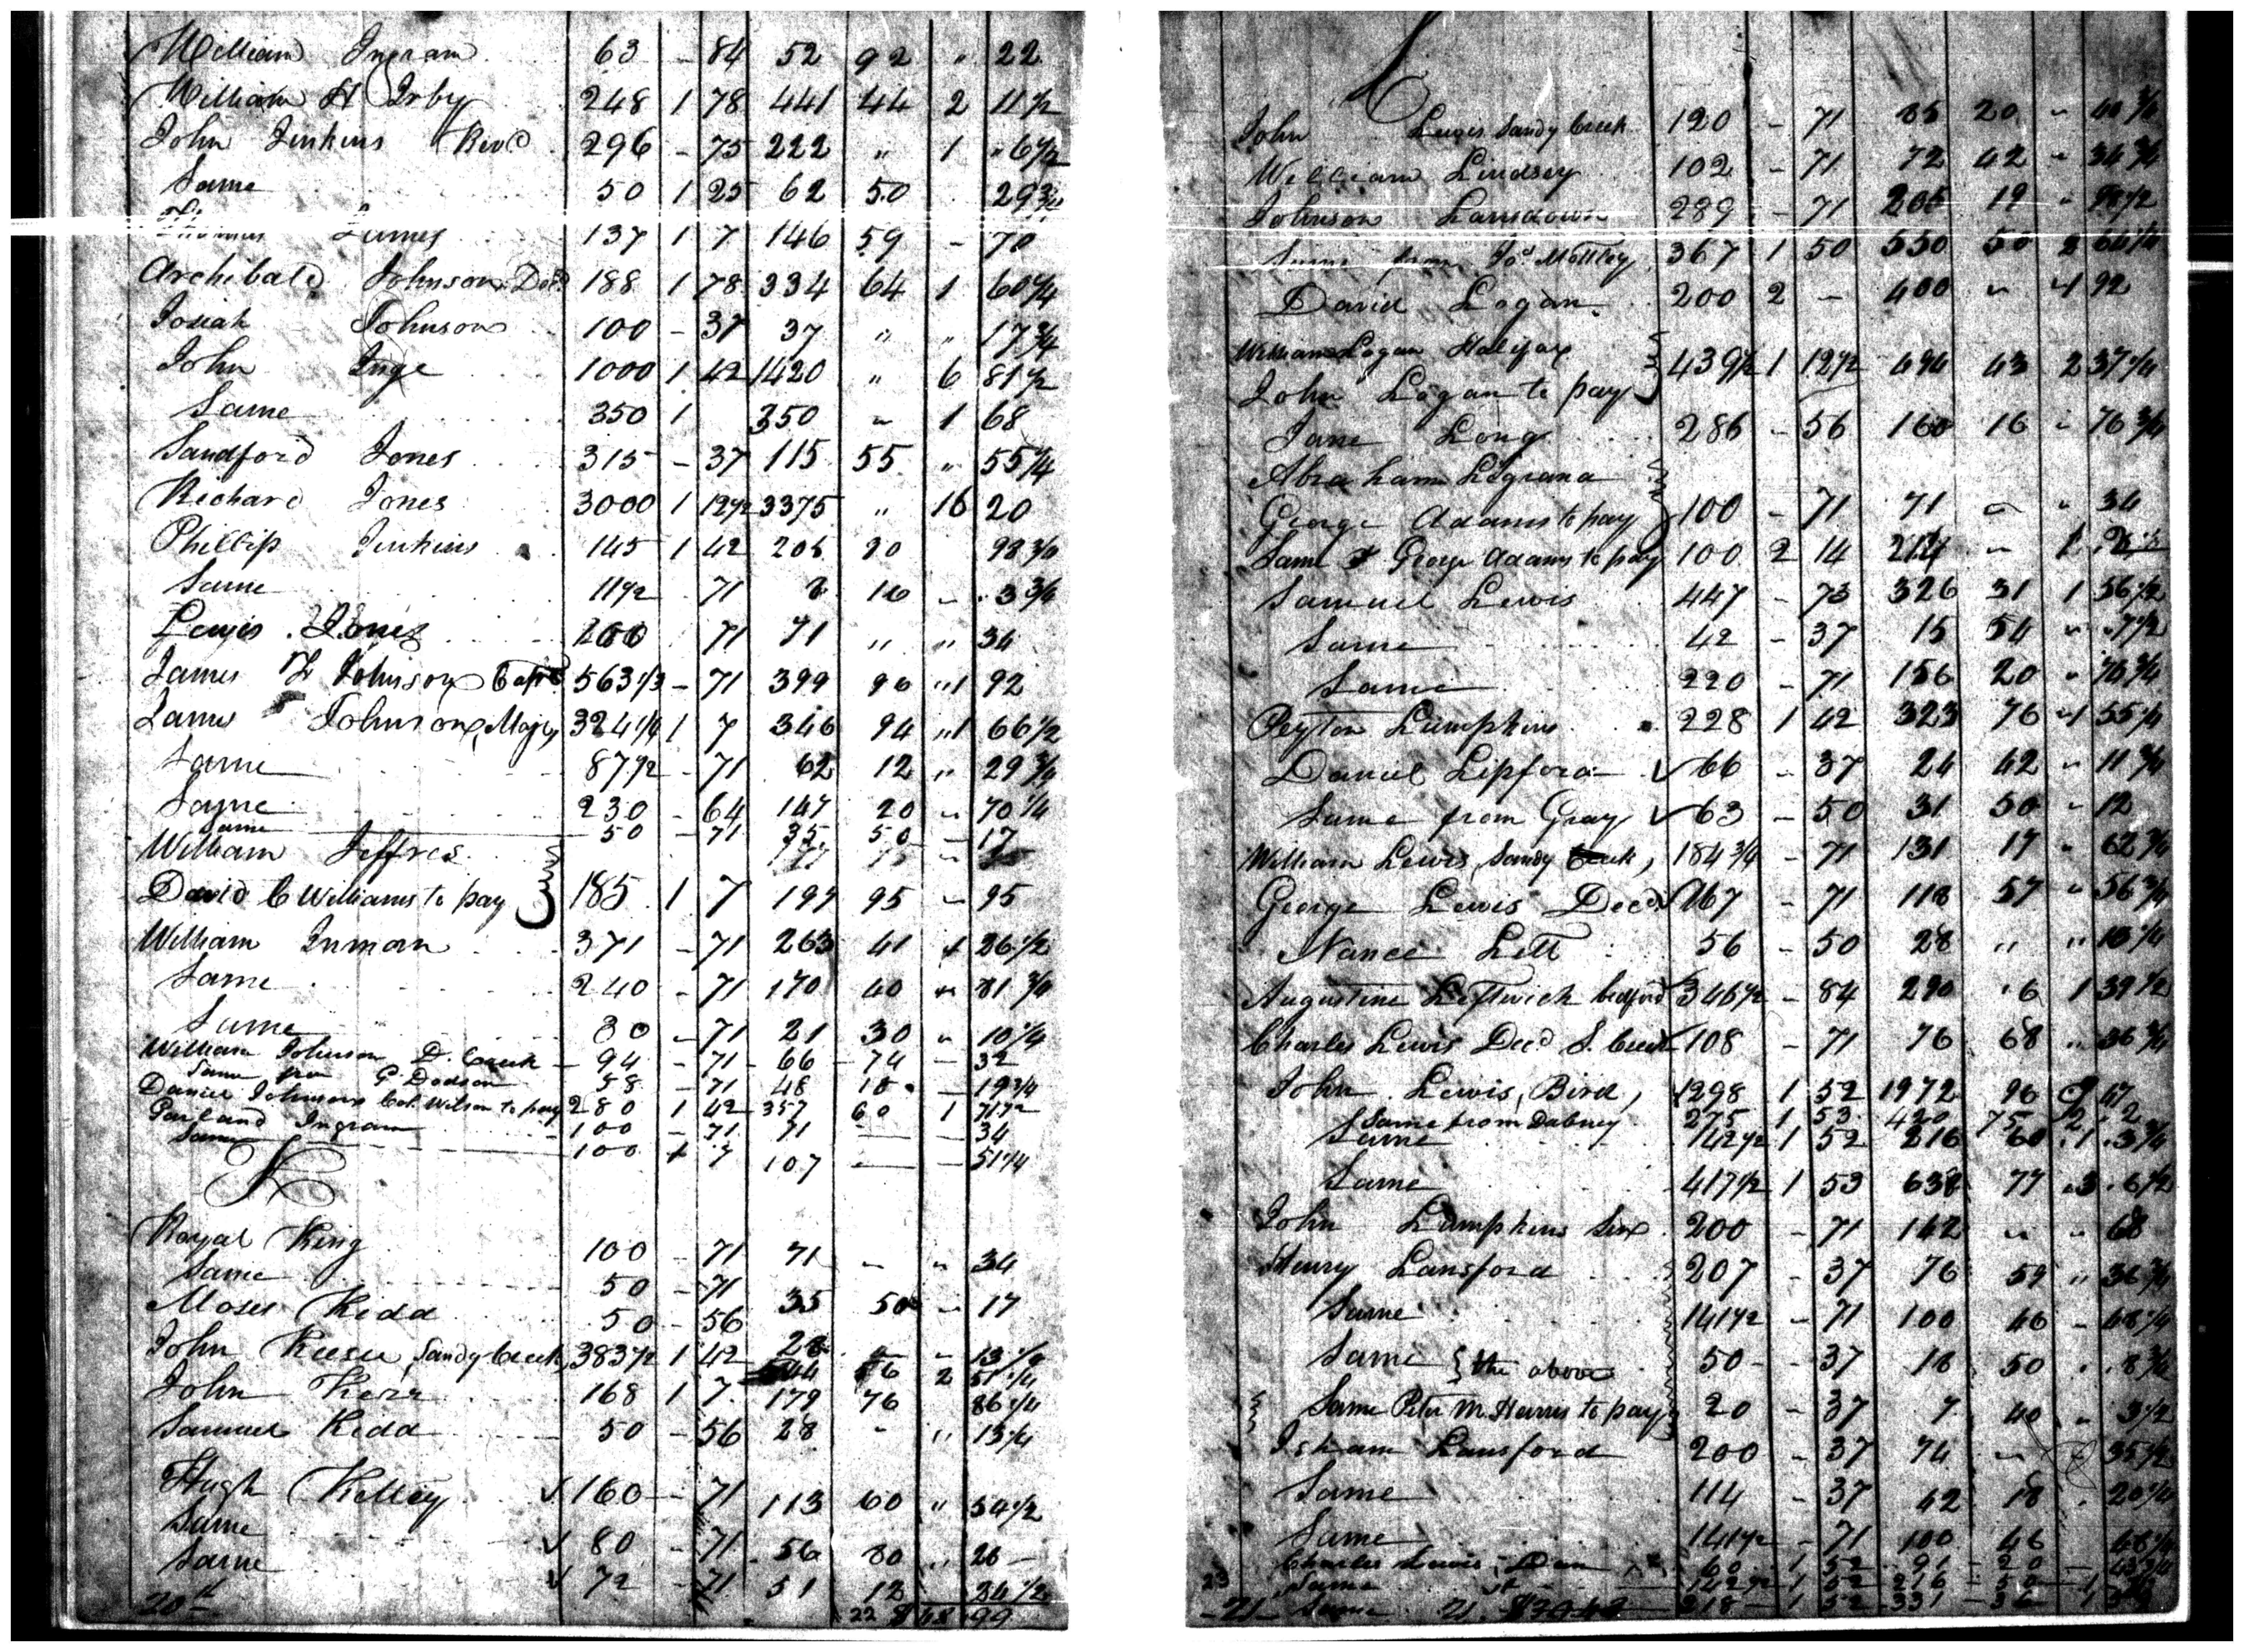 William Ingram 63 - 84 52 92 " 22
William H Irby 248 1 78 441 44 2 11 1/2
John Jenkins Revd 296 - 75 222 " 1 " 6 1/2
Same 50 1 25 62 50 29 3/4
James 137 1 7 146 59 - 70
Archibald Johnson Decd 188 1 78 334 64 1 60 1/4
Josiah Johnson 100 - 37 37 " " 17 3/4
John Inge 1000 1 42 1420 " 6 81 1/2
Same 350 1 350 " 1 68
Sandford Jones 315 - 37 115 55 " 55 1/4
Richard Jones 3000 1 12 1/2 3375 " 16 20
Phillip Jenkins 145 1 42 205 90 98 3/4
Same 11 1/2 71 8 16 - 3 3/4
Lewis Jones 71 71 " " 34
James Johnson Capt 563 1/3 - 71 399 96 " 1 92
James Johnson, Majr 324 1/4 1 7 346 94 " 1 66 1/2
Same 87 1/2 - 71 62 12 " 29 3/4
Same 230 - 64 147 20 " 70 1/4
Same 50 - 71 35 50 - 17
William Jeffres
David C Williams to pay 185 1 7 197 95 - 95
William Inman 371 - 71 263 41 1 26 1/2
Same 240 - 71 170 40 " 81 3/4
Same 30 - 71 21 30 " 10 1/4
William Johnson D. Creek - 94 - 71 - 66 - 74 - 32
Same from G Dodson 58 - 71 48 18 - 19 3/4
Daniel Johnson Col. Wilson to pay 280 1 42 357 60 1 71 1/2
Garland Ingram 100 - 71 71 34
Same 100 1 7 107 - 51 1/4
K
Royal King 100 - 71 71 - " 34
Same 50 - 71 35 50 - 17
Moses Kidd 50 - 56 28 - " 13 1/2
John Keesee Sandy Creek 383 1/2 1 42 544 56 2 51 1/4
John Kerr 168 1 7 179 76 86 1/4
Samuel Kidd 50 - 56 28 - " 13 1/4
Hugh Kelley 160 - 71 113 60 " 54 1/2
Same 80 - 71 56 80 " 26
Same 72 - 71 51 12 24 1/2
20th 22 48 99
L
John Lewis Sandy Creek 120 - 71 85 20 - 40 3/4
William Lindsey 102 - 71 72 42 - 34 3/4
Johnson Lansdown 289 - 71 205 19 "
Same from Jos Mottley 367 1 50 550 50 2 64 1/4
David Logan 200 2 - 400 " 1 92
William Logan Halifax
John Logan to pay 439 1/2 1 12 1/2 494 43 2 37 1/4
Jane Long 286 - 56 160 16 " 76 3/4
Abraham Legrand
George Adams to pay 100 - 71 71 " " 34
Same George Adams to pay 100 2 14 214 " 1
Samuel Lewis 447 - 73 326 31 1 56 1/2
Same 42 - 37 15 54 " 7 1/2
Same 220 - 71 156 20 " 75 3/4
Peyton Lumpkins 228 1 42 323 76 " 1 55 1/4
Daniel Lipford 66 - 37 24 42 " 11 3/4
Same from Gray 63 - 50 31 50 - 12
William Lewis, Sandy Creek, 184 3/4 - 71 131 17 " 62 3/4
George Lewis Decd 167 - 71 118 57 " 56 3/4
Nance Lett 56 - 50 28 " " 13 1/4
Augustine Leftwich Bedford 346 1/2 - 84 290 " 6 1 39 1/2
Charles Lewis Decd S. Creek 108 - 71 76 68 " 36 3/4
John Lewis, Bird, 1298 1 52 1972 96 9 47
Same from Dabney 275 1 53 420 75 2 . 2
Same 142 1/2 1 52 216 60 . 1 . 3 3/4
Same 417 1/2 1 53 638 77 3 . 6 1/2
John Lumpkins Senr 200 - 71 142 " " 68
Henry Lansford 207 - 37 76 59 " 36 3/4
Same 141 1/2 - 71 100 46 - 48 1/4
Same the above 50 - 37 18 50 . 8 3/4
Same Peter M. Harris to pay 20 - 37 7 40 " 3 1/2
Isham Lansford 200 - 37 74 " 35 1/2
Same 114 - 37 42 18 . 20 1/4
Same 141 1/2 - 71 100 46 48 1/4
Charles Lewis, Dan 60 1 52 91 - 20 - 43 3/4
Same 142 1/2 1 52 216
21 Same 218 - 1 52 331 - 36 1